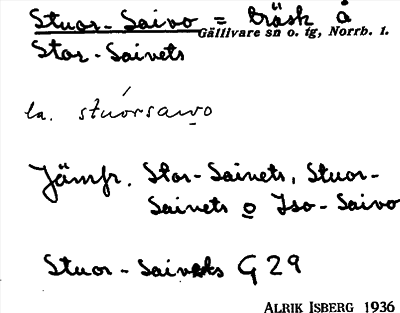 Stuor-Saivo = träsk å
Gällivare sn o. tg, Norrb. l.
Stor-Saivets
la. stuorsaivo
Jämfr. Stor-Saivets, Stuor-
Saivets o Iso-Saivo
Stuor-Saivets G 29
ALRIK ISBERG 1936